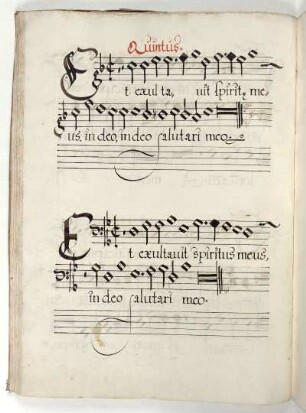 Quintus.
Et exulta, uit spirit9 me,
us, in deo, in deo salutari meo.
Et exultauit spiritus meus,
in deo salutari meo.